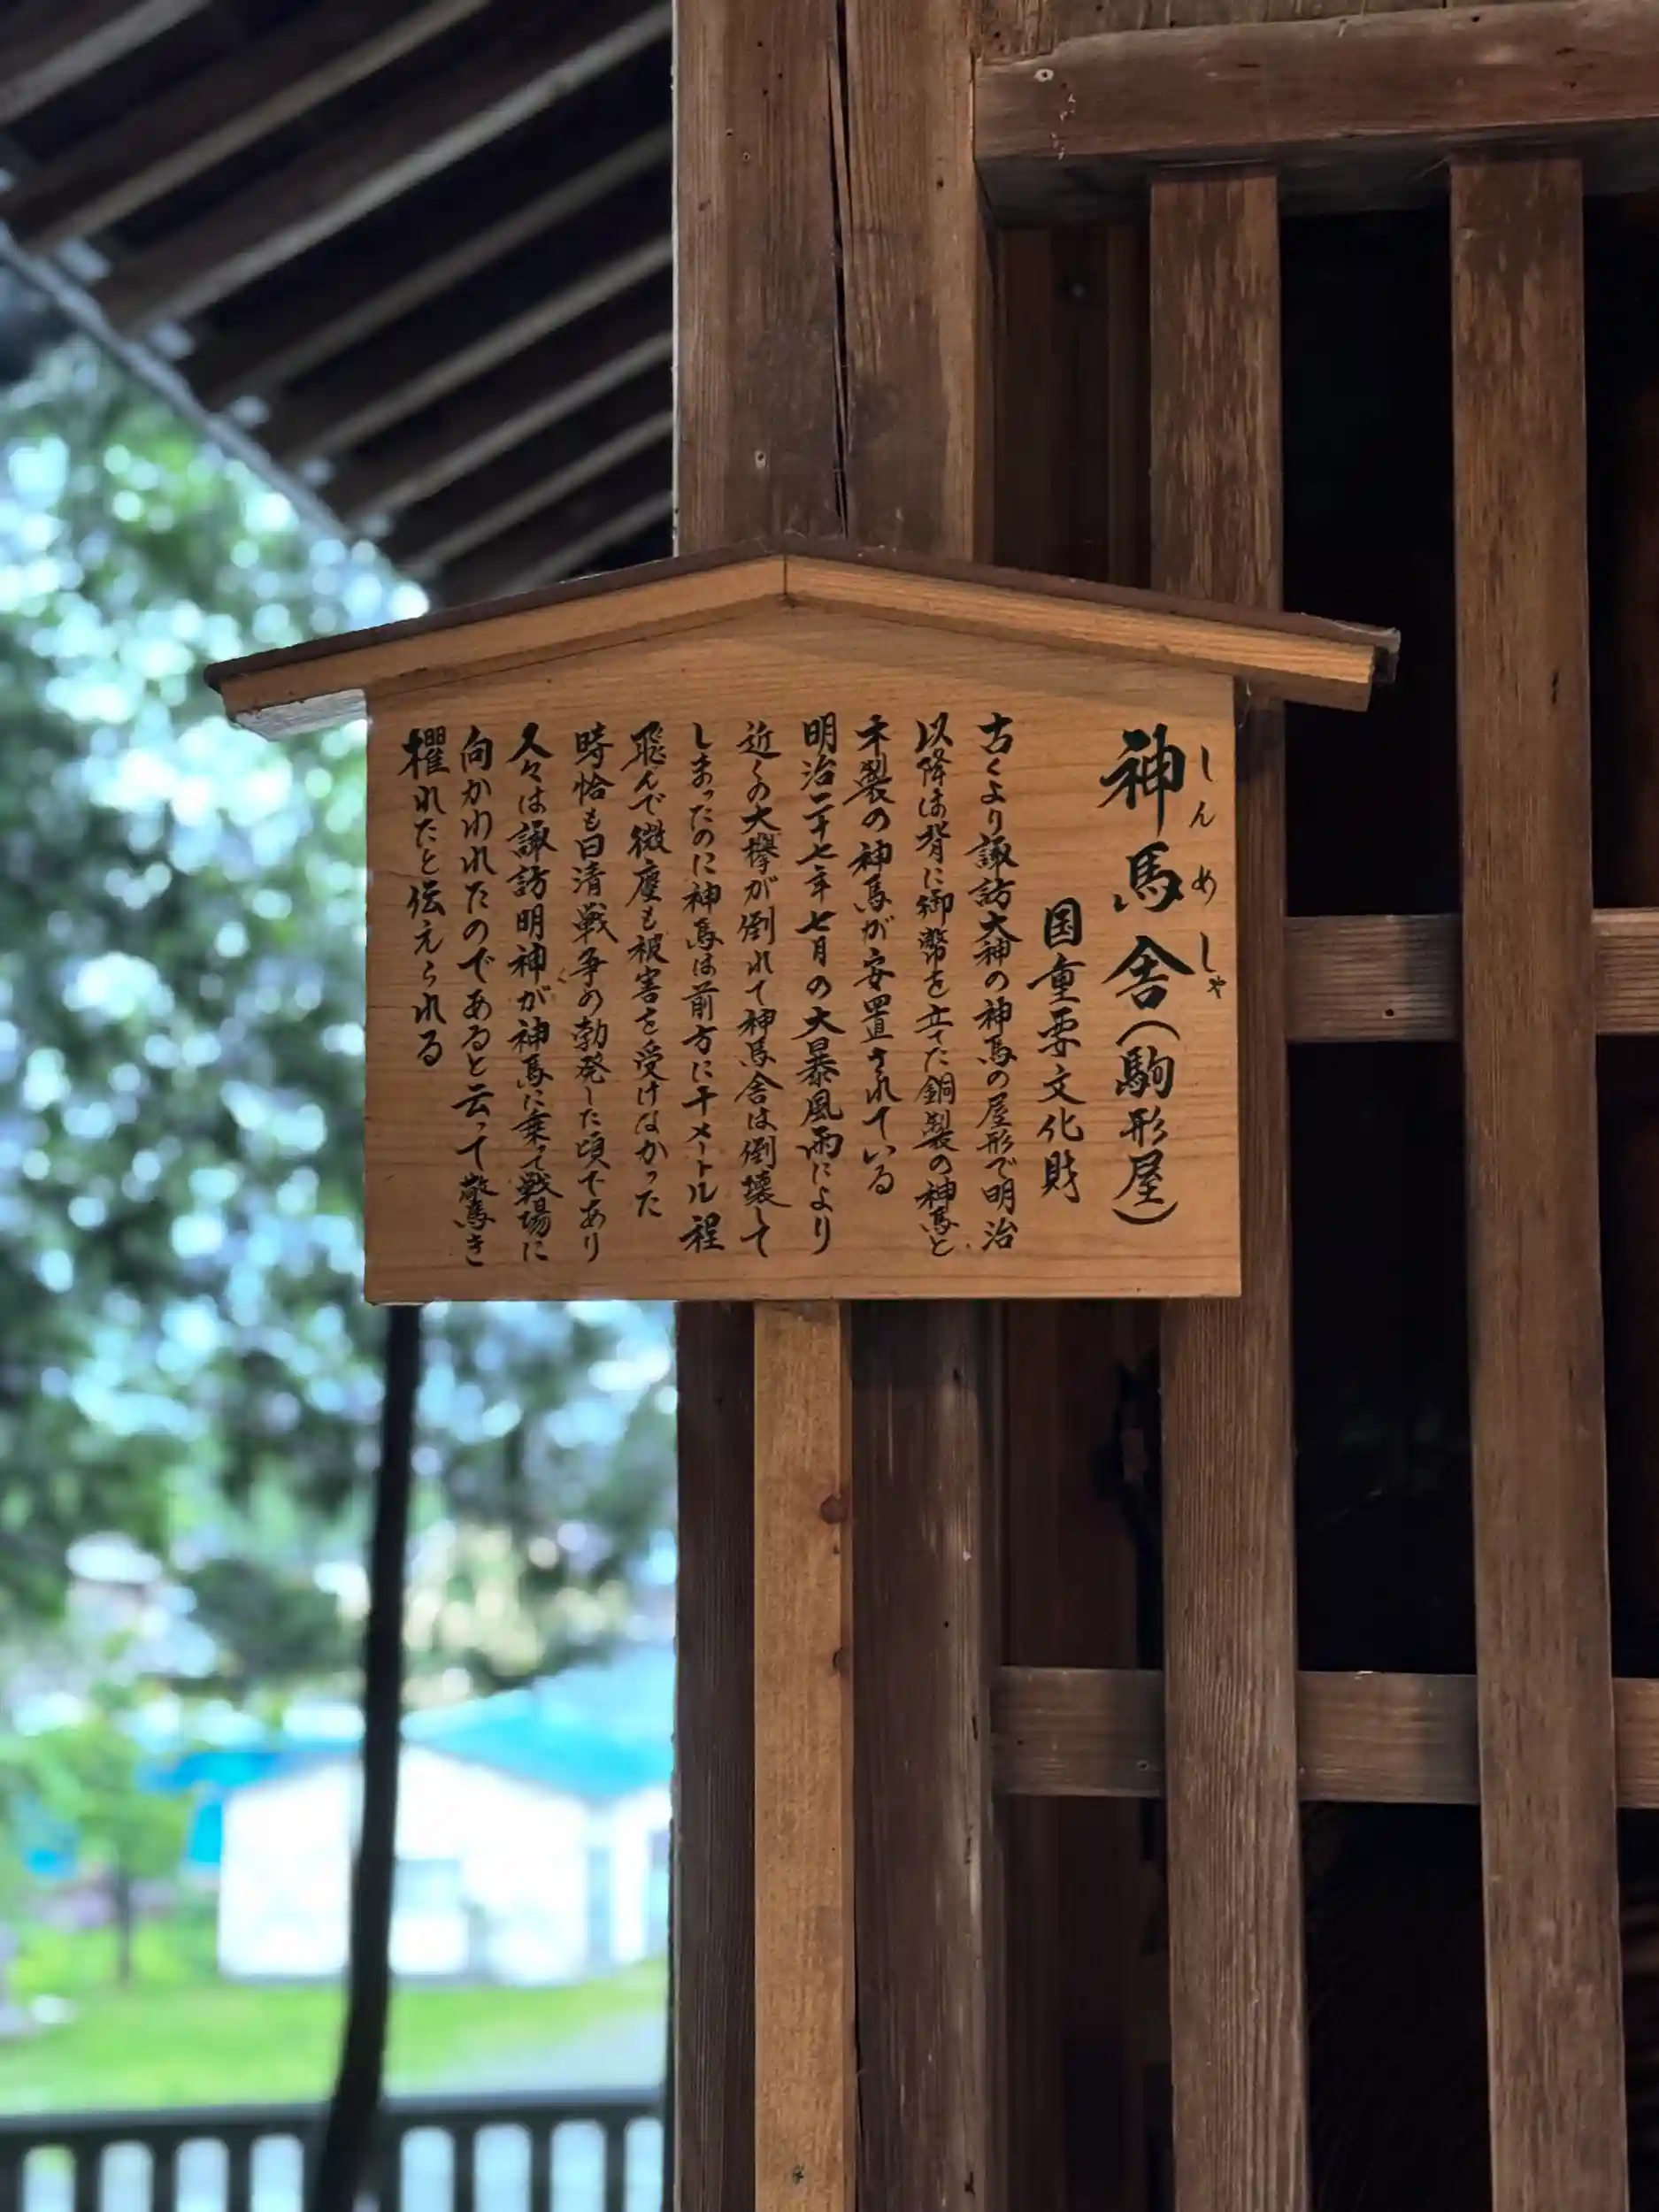 神馬舎(駒形屋)
しんめしゃ
国重要文化財
古くより諏訪大神の神馬の屋形で明治
以降は背に御幣を立てた銅製の神馬と
木製の神馬が安置されている
明治二十七年七月の大暴風雨により
近くの大欅が倒れて神馬舎は倒壊して
しまったのに神馬は前方に十メートル程
飛んで微塵も被害を受けなかった
時恰も日清戦争の勃発した頃であり
人々は諏訪明神が神馬に乗って戦場に
向かわれたのであると云って驚き
懼れたと伝えられる